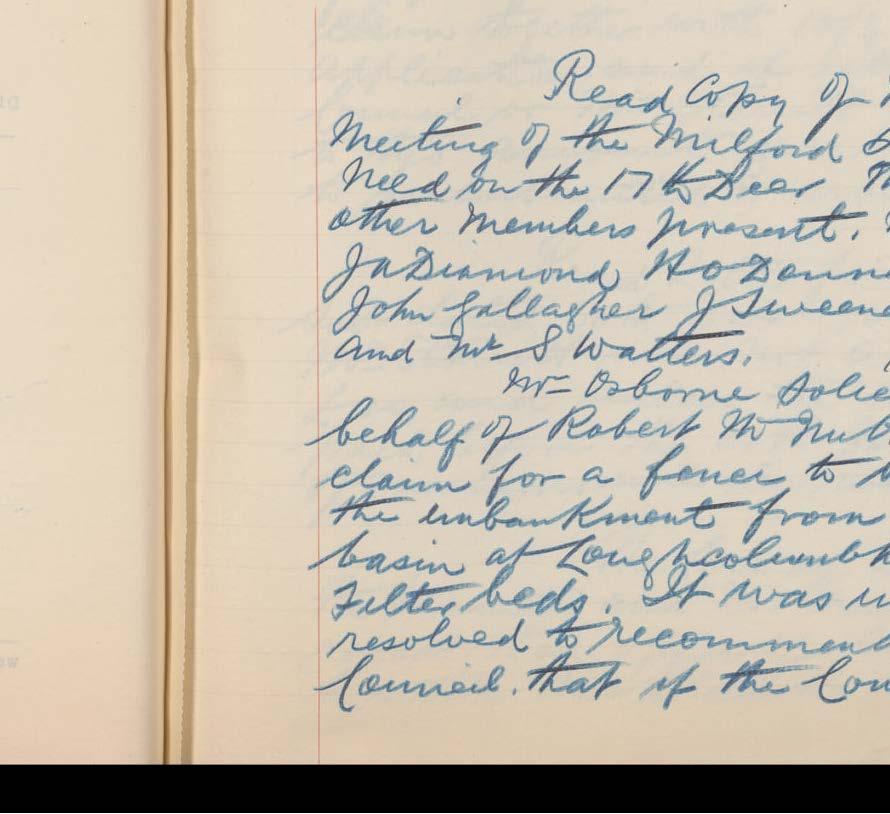 Read Copy of
Meeting of the Milford
Held on the 17th Decr
other Members present.
Ja Diamond H O Donn
John Gallagher J Sweene
and Mr S Watters.
Mr Osborne Solic
behalf of Robert Mc Nut
claim for a fence to
the embankment from
basin at Loughcolumbk
Filter beds. It was u
resolved to recommend
Council. that if the Cou